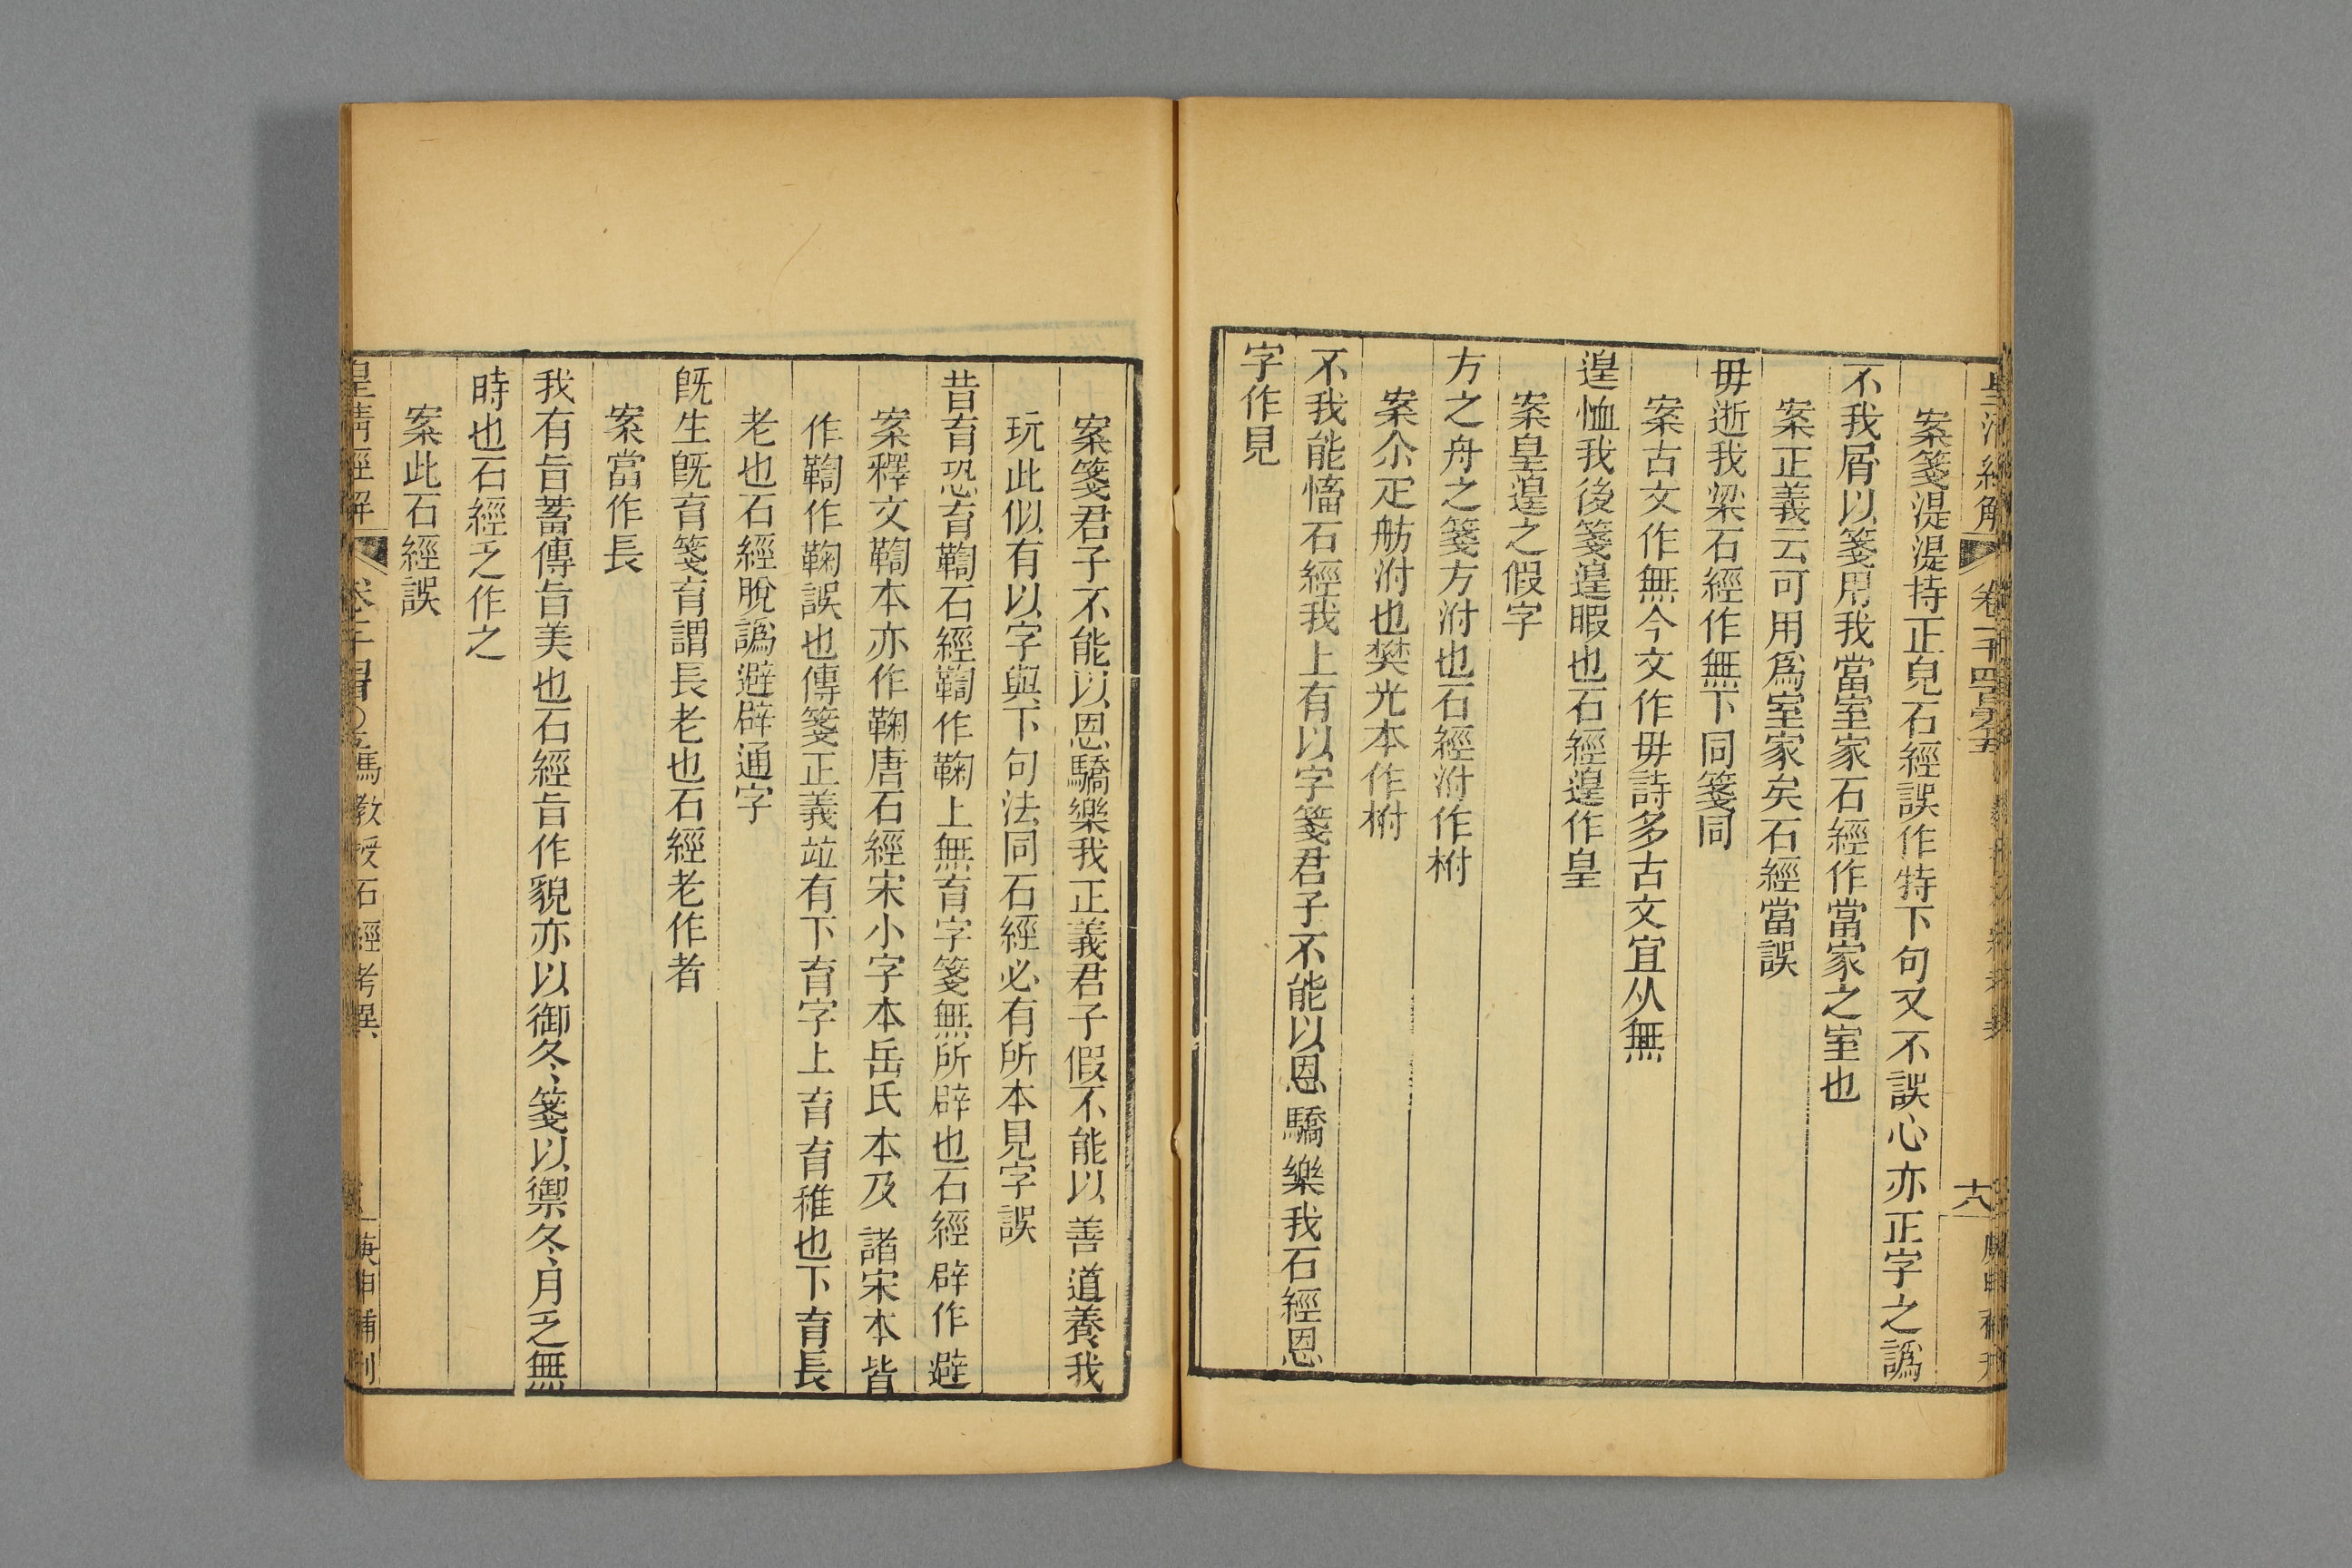 案箋湜湜持正皃石經誤作特下句又不誤心亦正字之譌
不我屑以箋用我當室家石經作當家之室也
案正義云可用爲室家矣石經當誤
毋逝我梁石經作無下同箋同
案古文作無今文作毋詩多古文宜从無
遑恤我後箋遑暇也石經遑作皇
案皇遑之假字
方之舟之箋方泭也石經泭作柎
案尒疋舫泭也樊光本作柎
不我能慉石經我上有以字箋君子不能以恩驕樂我石經恩
字作見
案箋君子不能以恩驕樂我正義君子假不能以善道養我
玩此似有以字與下句法同石經必有所本見字誤
昔育恐育鞫石經鞫作鞠上無育字箋無所辟也石經辟作避
案釋文鞫本亦作鞠唐石經宋小字本岳氏本及諸宋本皆
作鞫作鞠誤也傳箋正義竝有下育字上育育稚也下育長
老也石經脫譌避辟通字
旣生旣育箋育謂長老也石經老作者
案當作長
我有旨蓄傳旨美也石經旨作貌亦以御冬箋以禦冬月乏無
時也石經乏作之
案此石經誤
皇清經解 馮教授石經考異 庚申補刊